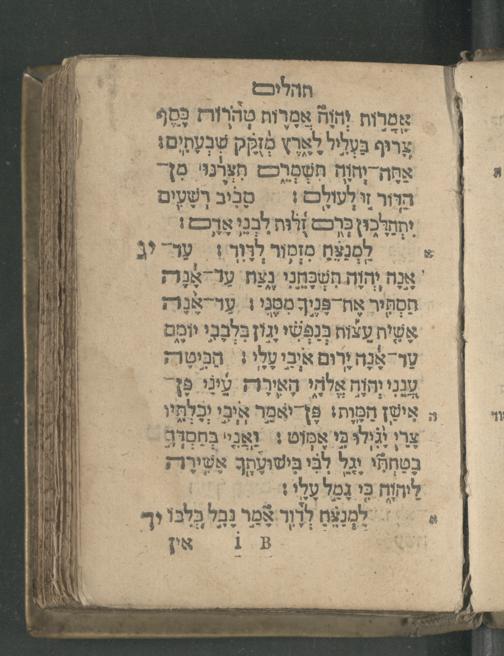 תהלים
אִמֲרוֹת יְהוָה אֲמָרוֹת טְהֹרוֹת כֶּסֶף
צָרוּף בַּעֲלִיל לָאָרֶץ מְזֻקָּק שִׁבְעָתָיִם׃
אַתָּה־יְהוָה תִּשְׁמְרֵם תִּצְּרֶנּוּ מִן־
הַדּוֹר זוּ לְעוֹלָם׃ סָבִיב רְשָׁעִים
יִתְהַלָּכוּן כְּרֻם זֻלּוּת לִבְנֵי אָדָם׃
א לַמְנַצֵּחַ מִזְמוֹר לְדָוִד׃ עַד־ יג
אָנָה יְהוָה תִּשְׁכָּחֵנִי נֶצַח עַד־אָנָה
תַּסְתִּיר אֶת־פָּנֶיךָ מִמֶּנִּי׃ עַד־אָנָה
אָשִׁית עֵצוֹת בְּנַפְשִׁי יָגוֹן בִּלְבָבִי יוֹמָם
עַד־אָנָה יָרוּם אֹיְבִי עָלָי׃ הַבִּיטָה
עֲנֵנִי יְהוָה אֱלֹהָי הָאִירָה עֵינַי פֶּן־
ה אִישַׁן הַמָּוֶת׃ פֶּן־יֹאמַר אֹיְבִי יְכָלְתִּיו
צָרַי יָגִילוּ כִּי אֶמּוֹט׃ וַאֲנִי בְּחַסְדְּךָ
בָטַחְתִּי יָגֵל לִבִּי בִּישׁוּעָתֶךָ אָשִׁירָה
לַיהוָה כִּי גָמַל עָלָי׃
א לַמְנַצֵּחַ לְדָוִד אָמַר נָבָל בְּלִבּוֹ יד
אין i B